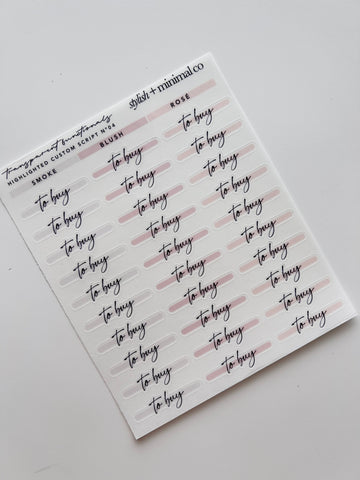 stylish + minimal co
transparent functionals
HIGHLIGHTED CUSTOM SCRIPT Nº04
SMOKE BLUSH ROSE
to buy to buy to buy
to buy to buy to buy
to buy to buy to buy
to buy to buy to buy
to buy to buy to buy
to buy to buy to buy
to buy to buy to buy
to buy to buy to buy
to buy to buy to buy
to buy to buy to buy